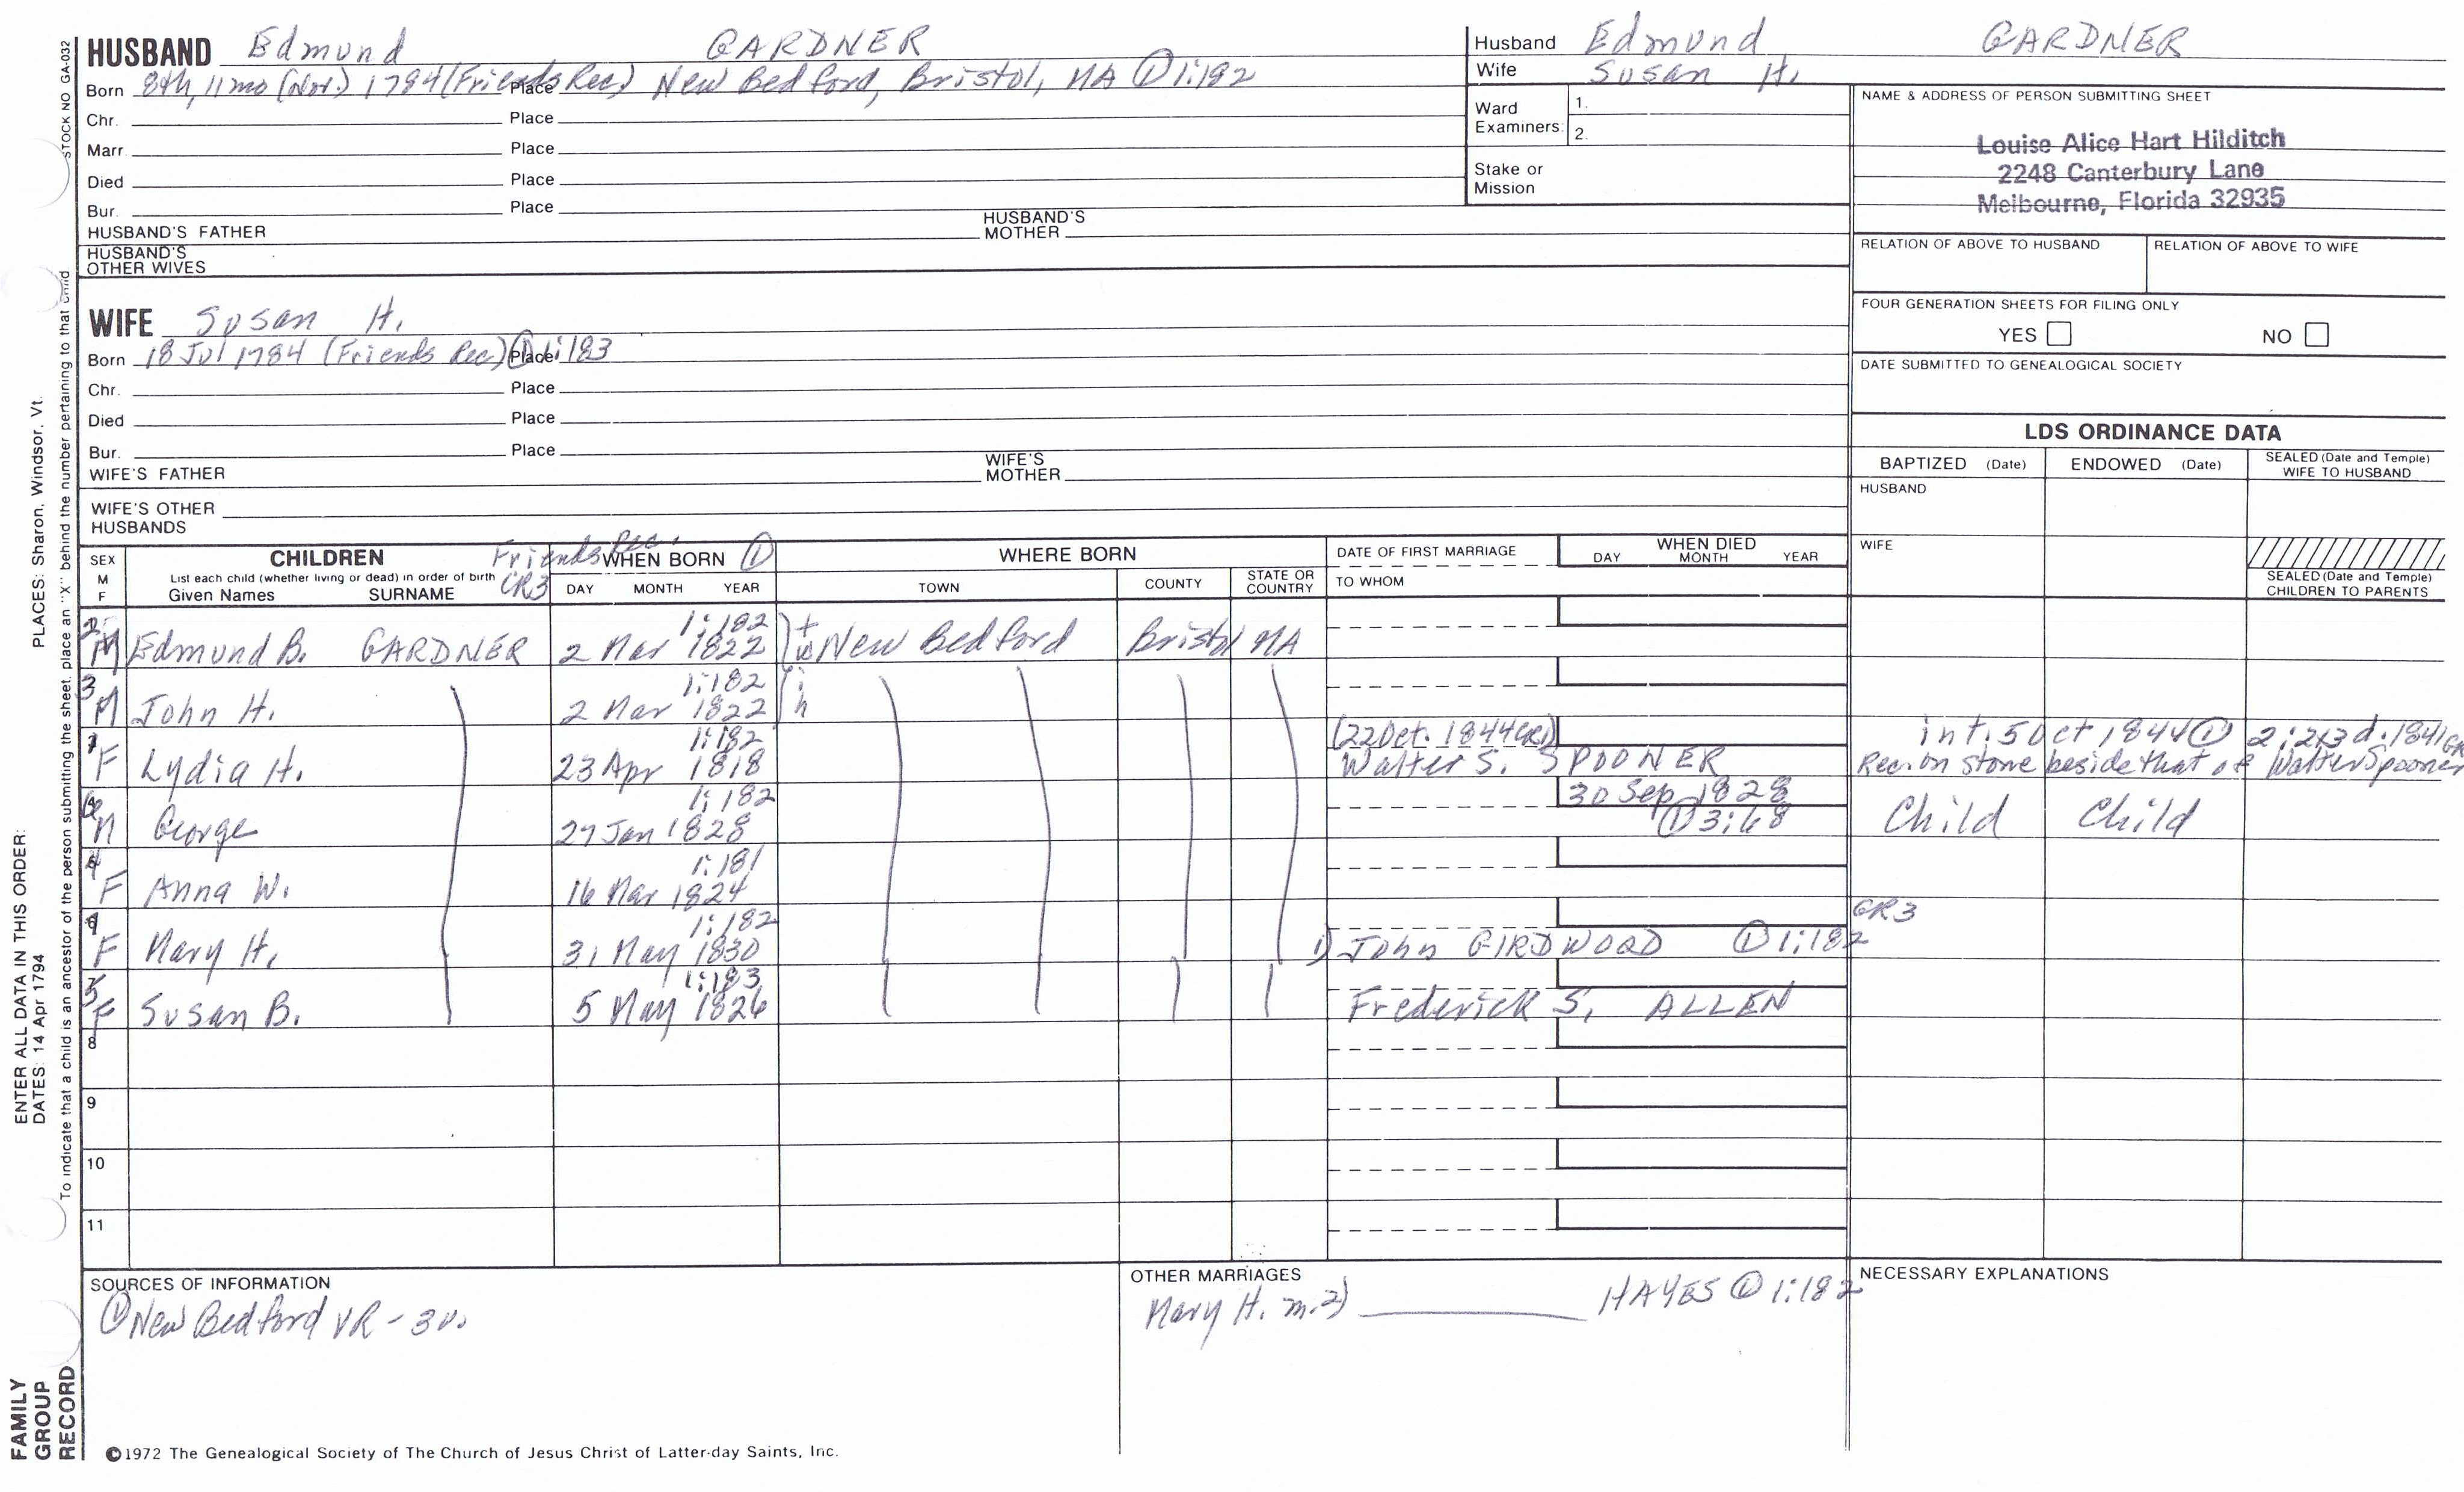 HUSBAND Edmund GARDNER
Born 8th, 11 mo (Nov.) 1784 (Friends Rec) Place New Bedford, Bristol, MA ① 1:182
Chr. Place
Marr. Place
Died Place
Bur. Place
HUSBAND'S FATHER HUSBAND'S MOTHER
HUSBAND'S OTHER WIVES
Husband Edmund GARDNER
Wife Susan H.
Ward Examiners: 1.
2.
Stake or Mission
NAME & ADDRESS OF PERSON SUBMITTING SHEET
Louise Alice Hart Hilditch
2248 Canterbury Lane
Melbourne, Florida 32935
RELATION OF ABOVE TO HUSBAND RELATION OF ABOVE TO WIFE
FOUR GENERATION SHEETS FOR FILING ONLY
YES NO
DATE SUBMITTED TO GENEALOGICAL SOCIETY
WIFE Susan H.
Born 18 Jul 1784 (Friends Rec) Place ① 1:183
Chr. Place
Died Place
Bur. Place
WIFE'S FATHER WIFE'S MOTHER
WIFE'S OTHER HUSBANDS
LDS ORDINANCE DATA
BAPTIZED (Date) ENDOWED (Date) SEALED (Date and Temple) WIFE TO HUSBAND
HUSBAND
WIFE
SEALED (Date and Temple) CHILDREN TO PARENTS
SEX M F
CHILDREN Friends Rec. GR3
List each child (whether living or dead) in order of birth
Given Names SURNAME
WHEN BORN ①
DAY MONTH YEAR
WHERE BORN
TOWN COUNTY STATE OR COUNTRY
DATE OF FIRST MARRIAGE
TO WHOM
WHEN DIED
DAY MONTH YEAR
1:182
2 M Edmund B. GARDNER 2 Mar 1822 tw New Bedford Bristol MA
1:182
3 M John H. 2 Mar 1822 in
1:182 (22 Oct. 1844 GR1) int. 5 Oct 1844 ① 2:213 d. 1841 GR
1 F Lydia H. 23 Apr 1818 Walter S. SPOONER Rec. on stone beside that of Walter Spooner
1:182 30 Sep 1828
6 M George 27 Jan 1828 ① 3:68 Child Child
1:181
4 F Anna W. 16 Mar 1824
1:182 GR3
F Mary H. 31 May 1830 1) John GIRDWOOD ① 1:182
1:183
5 F Susan B. 5 May 1826 Frederick S. ALLEN
8
9
10
11
SOURCES OF INFORMATION
① New Bedford VR - 3v.
OTHER MARRIAGES
Mary H. m. 2) HAYES ① 1:182
NECESSARY EXPLANATIONS
©1972 The Genealogical Society of The Church of Jesus Christ of Latter-day Saints, Inc.
STOCK NO GA-032
PLACES: Sharon, Windsor, Vt.
To indicate that a child is an ancestor of the person submitting the sheet, place an "X" behind the number pertaining to that child
ENTER ALL DATA IN THIS ORDER:
DATES: 14 Apr 1794
FAMILY GROUP RECORD